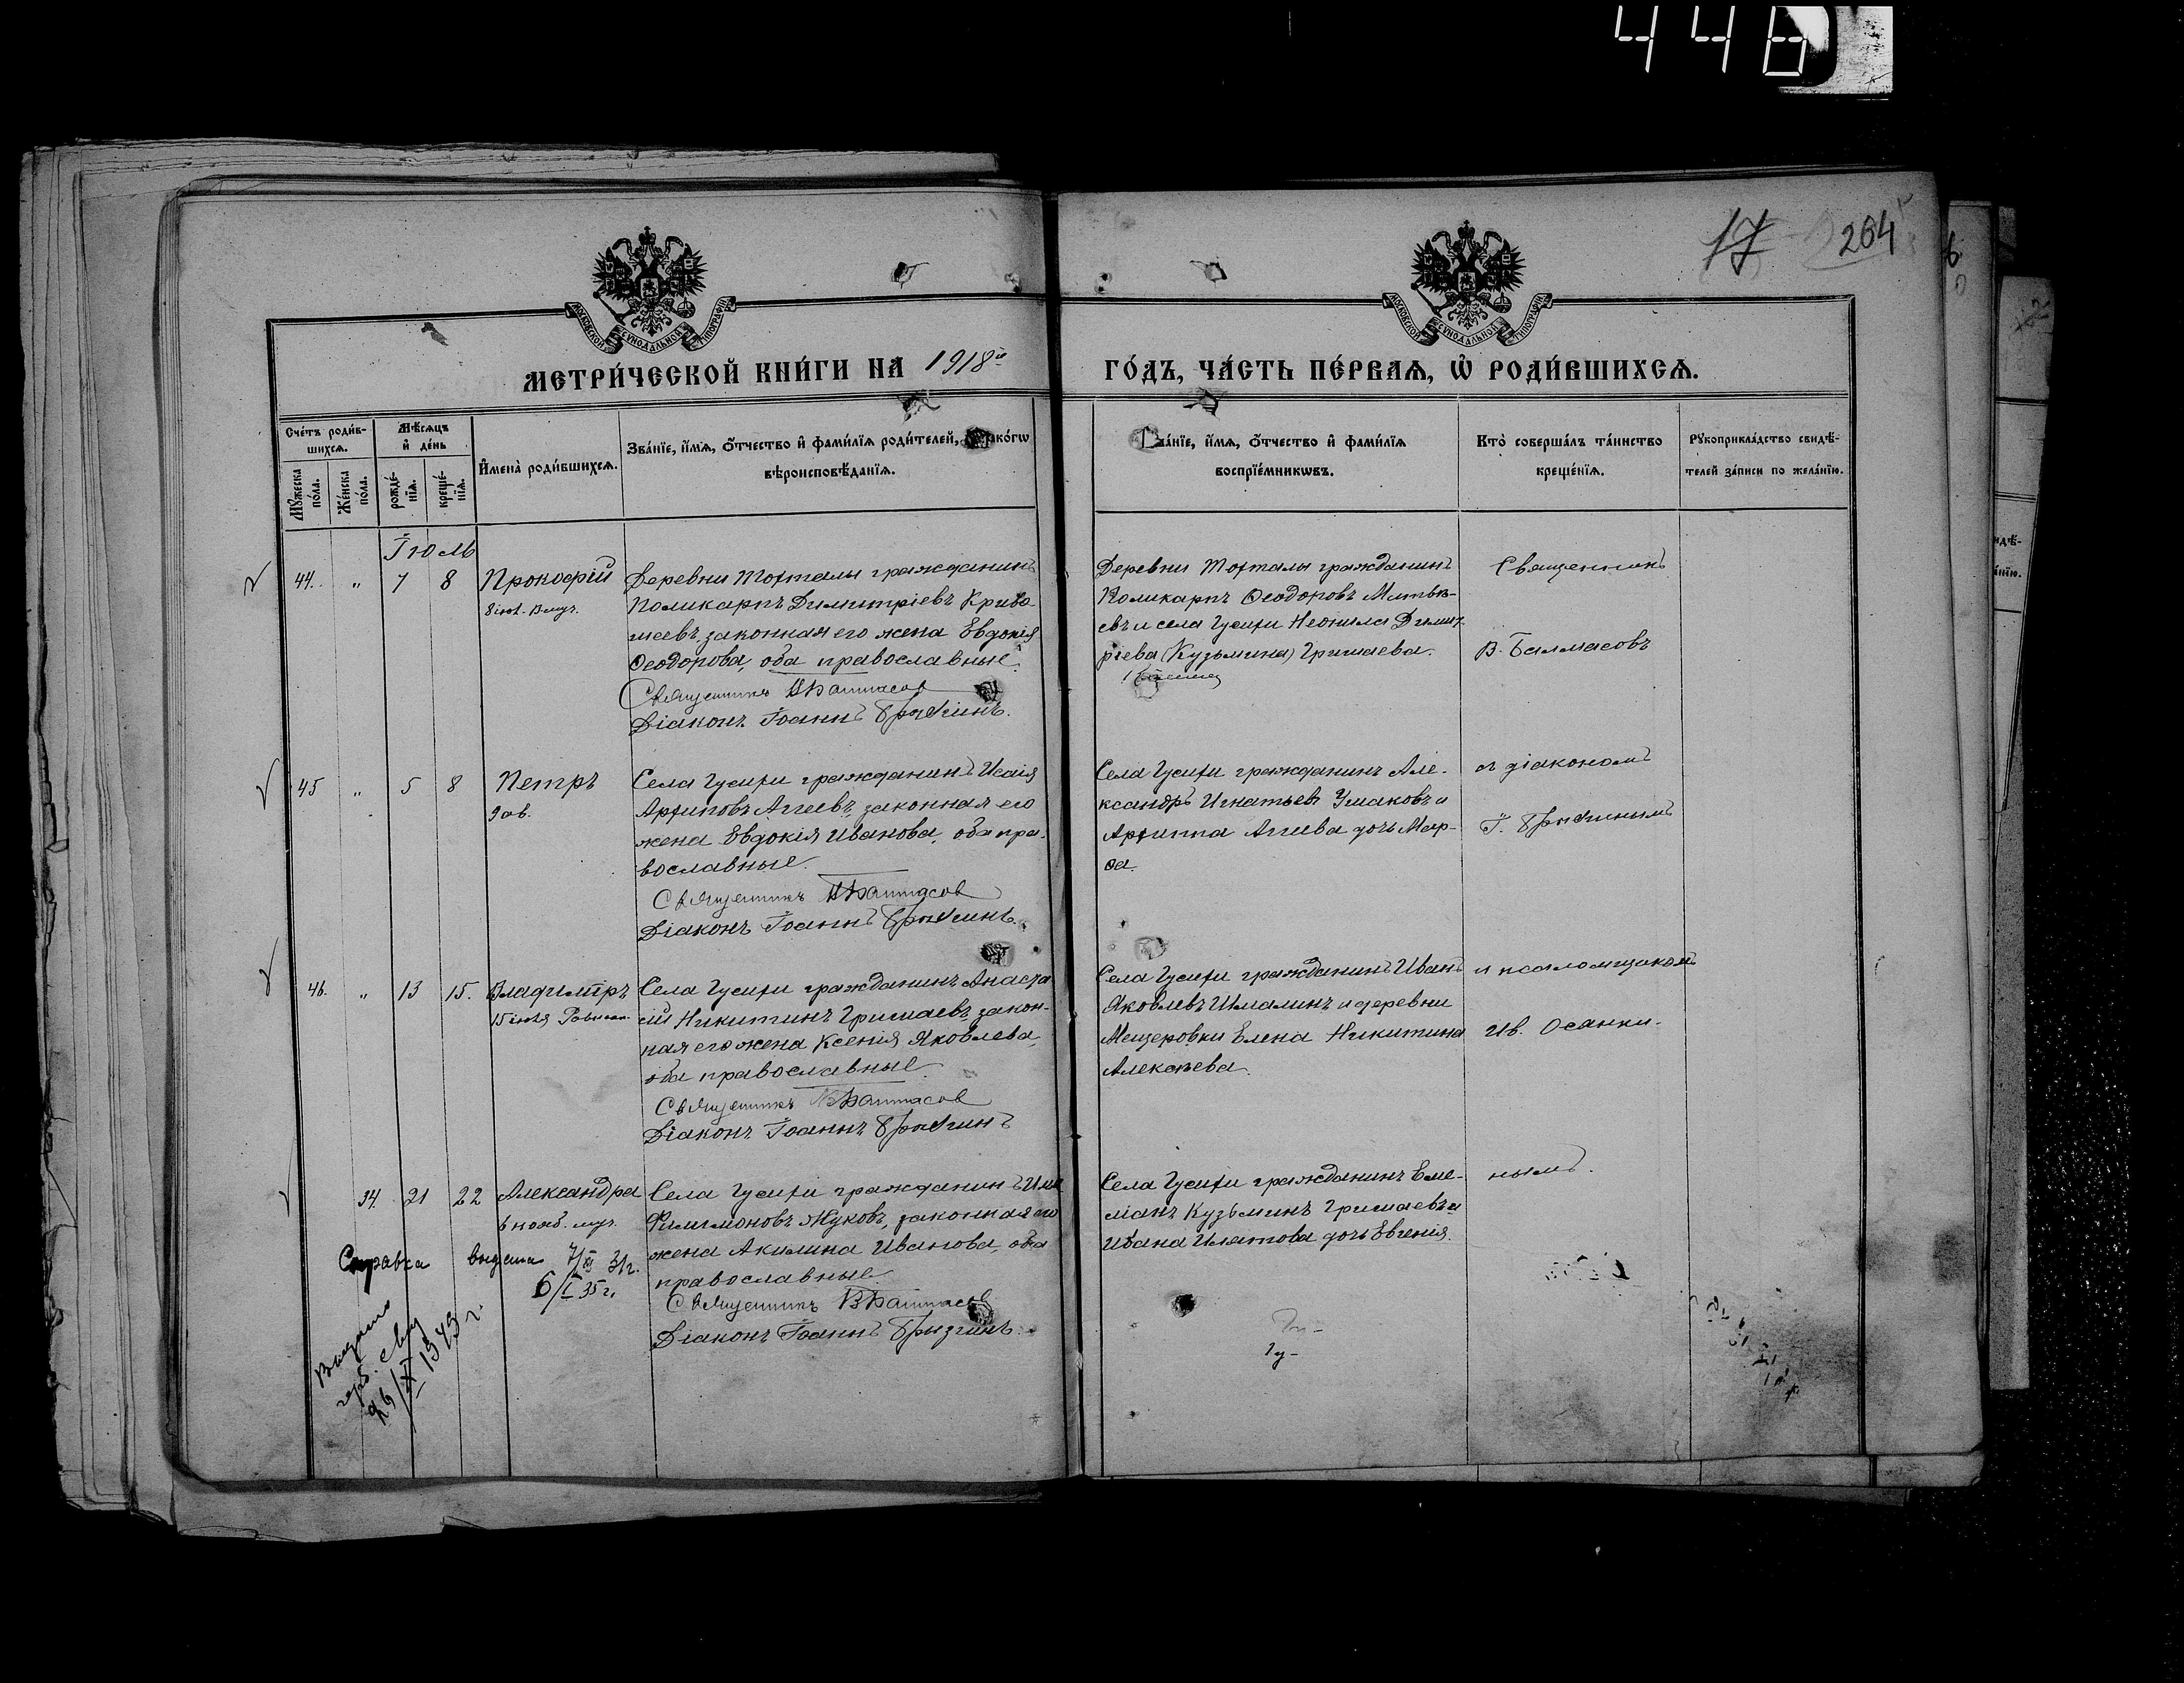 448
17 264
МОСКОВСКОЙ СУНОДАЛЬНОЙ ТИПОГРАФІИ
МОСКОВСКОЙ СУНОДАЛЬНОЙ ТИПОГРАФІИ
МЕТРИ́ЧЕСКОЙ КНИ́ГИ НА 1918й
ГО́ДЪ, ЧА́СТЬ ПЕ́РВАѦ, Ѡ РОДИ́ВШИХСѦ.
Сче́тъ роди́в-
шихсѧ.
Мꙋжеска по́ла.
Же́нска по́ла.
Мѣ́сѧцъ
и де́нь
рожде́-
нїѧ.
креще́-
нїѧ.
Имена̀ роди́вшихсѧ.
Зва́нїе, и́мѧ, о́тчество и фами́лїѧ роди́телей, и како́гѡ
вѣроисповѣ́данїѧ.
Зва́нїе, и́мѧ, о́тчество и фами́лїѧ
воспрїе́мникѡвъ.
Кто̀ соверша́лъ та́инство
креще́нїѧ.
Рꙋкоприкла́дство свидѣ́-
телей за́писи по жела́нїю.
Іюль
44. " 7 8 Прокофій
8 іюл.
Деревни гражданинъ
Поликарпъ Димитріевъ Криво-
шеевъ, законная его жена Евдокія
Ѳеодорова, оба православные.
Священникъ В Балмасов
Діаконъ Іоаннъ Брызгинъ.
Деревни гражданинъ
Поликарпъ Ѳеодоровъ Матвѣ-
евъ и села Гусихи Неонила Димит-
ріева (Кузьмина) Гришаева.
Священникъ
В. Балмасовъ
45 " 5 8 Петръ
Села Гусихи гражданинъ Исаія
Архиповъ Агеевъ, законная его
жена Евдокія Иванова, оба пра-
вославные.
Священникъ В Балмасов
Діаконъ Іоаннъ Брызгинъ.
Села Гусихи гражданинъ Але-
ксандръ Игнатьев Ушаковъ и
Архипа Агеева дочь Мар-
ѳа.
съ діакономъ
І. Брызгинымъ
46. " 13 15. Владиміръ
15 іюля Равноап.
Села Гусихи гражданинъ Анаста
сій Никитинъ Гришаевъ, закон-
ная его жена Ксенія Яковлева,
оба православные.
Священникъ В Балмасов
Діаконъ Іоаннъ Брызгинъ
Села Гусихи гражданинъ Иванъ
Яковлевъ Шмалинъ и деревни
Мещеровки Елена Никитина
Алексѣева.
и псаломщикомъ
Ив. Осанки-
нымъ.
34. 21 22 Александра
6 нояб. муч.
Села Гусихи гражданинъ Илья
Филимоновъ Жуковъ, законная его
жена Акилина Иванова, оба
православные.
Священникъ В Балмасов
Діаконъ Іоаннъ Брызгинъ.
Села Гусихи гражданинъ Еме-
ліанъ Кузьминъ Гришаевъ и
Ивана Ипатова дочь Евгенія.
Справка выдана 7/XI 31г.
6/I 35г.
Выдано
1943 г.
Гу-